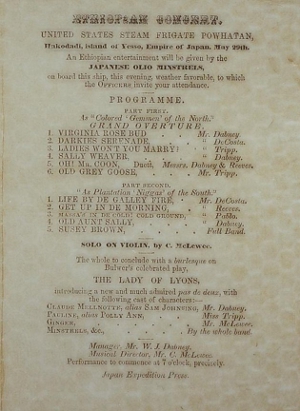 ETHIOPIAN CONCERT.
UNITED STATES STEAM FRIGATE POWHATAN,
Hakodadi, island of Yesso, Empire of Japan, May 29th.
An Ethiopian entertainment will be given by the
JAPANESE OLIO MINSTRELS,
on board this ship, this evening, weather favorable, to which
the OFFICERS invite your attendance.
PROGRAMME.
PART FIRST.
As "Colored 'Gemmen' of the North."
GRAND OVERTURE.
1. VIRGINIA ROSE BUD . . . Mr. Dabney.
2. DARKIES SERENADE, . . . " DaCosta.
3. LADIES WON'T YOU MARRY? . . " Tripp.
4. SALLY WEAVER, . . . . " Dabney.
5. OH! Mr. COON, Duett, Messrs. Dabney & Reeves.
6. OLD GREY GOOSE, . . . Mr. Tripp.
PART SECOND.
As "Plantation 'Niggas' of the South."
1. LIFE BY DE GALLEY FIRE, Mr. DaCosta.
2. GET UP IN DE MORNING, . . " Reeves.
3. MASSA'S IN DE COLD! COLD GROUND, "
4. OLD AUNT SALLY, . . . . " Dabney.
5. SUSEY BROWN, . . . . Full Band.
SOLO ON VIOLIN, by C. McLewee.
The whole to conclude with a burlesque on
Bulwer's celebrated play,
THE LADY OF LYONS,
introducing a new and much admired pas de deux, with
the following cast of characters:—
CLAUDE MELLNOTTE, alias SAM JOHNSING, Mr. Dabney.
PAULINE, alias POLLY ANN, . . . Miss Tripp.
GINGER, . . . . . Mr. McLewee.
MINSTRELS, &c., . . . . By the whole band.
Manager, Mr. W. J. Dabney.
Musical Director, Mr. C. McLewee.
Performance to commence at 7 o'clock, precisely.
Japan Expedition Press.